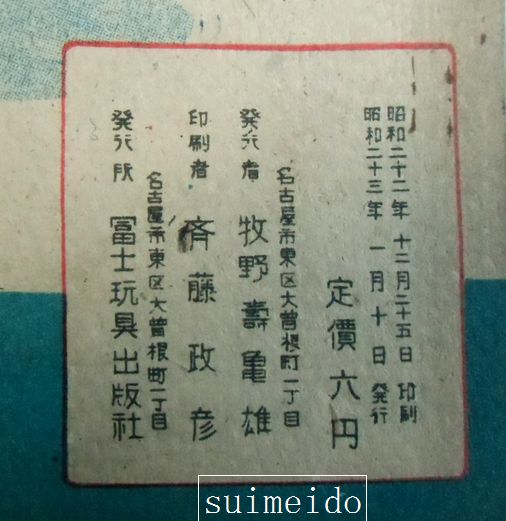 昭和二十二年 十二月二十五日 印刷
昭和二十三年 一月十日 発行
定價六円
名古屋市東区大曽根町一丁目
発行者 牧野壽亀雄
印刷者 斉藤政彦
名古屋市東区大曽根町一丁目
発行所 冨士玩具出版社
suimeido